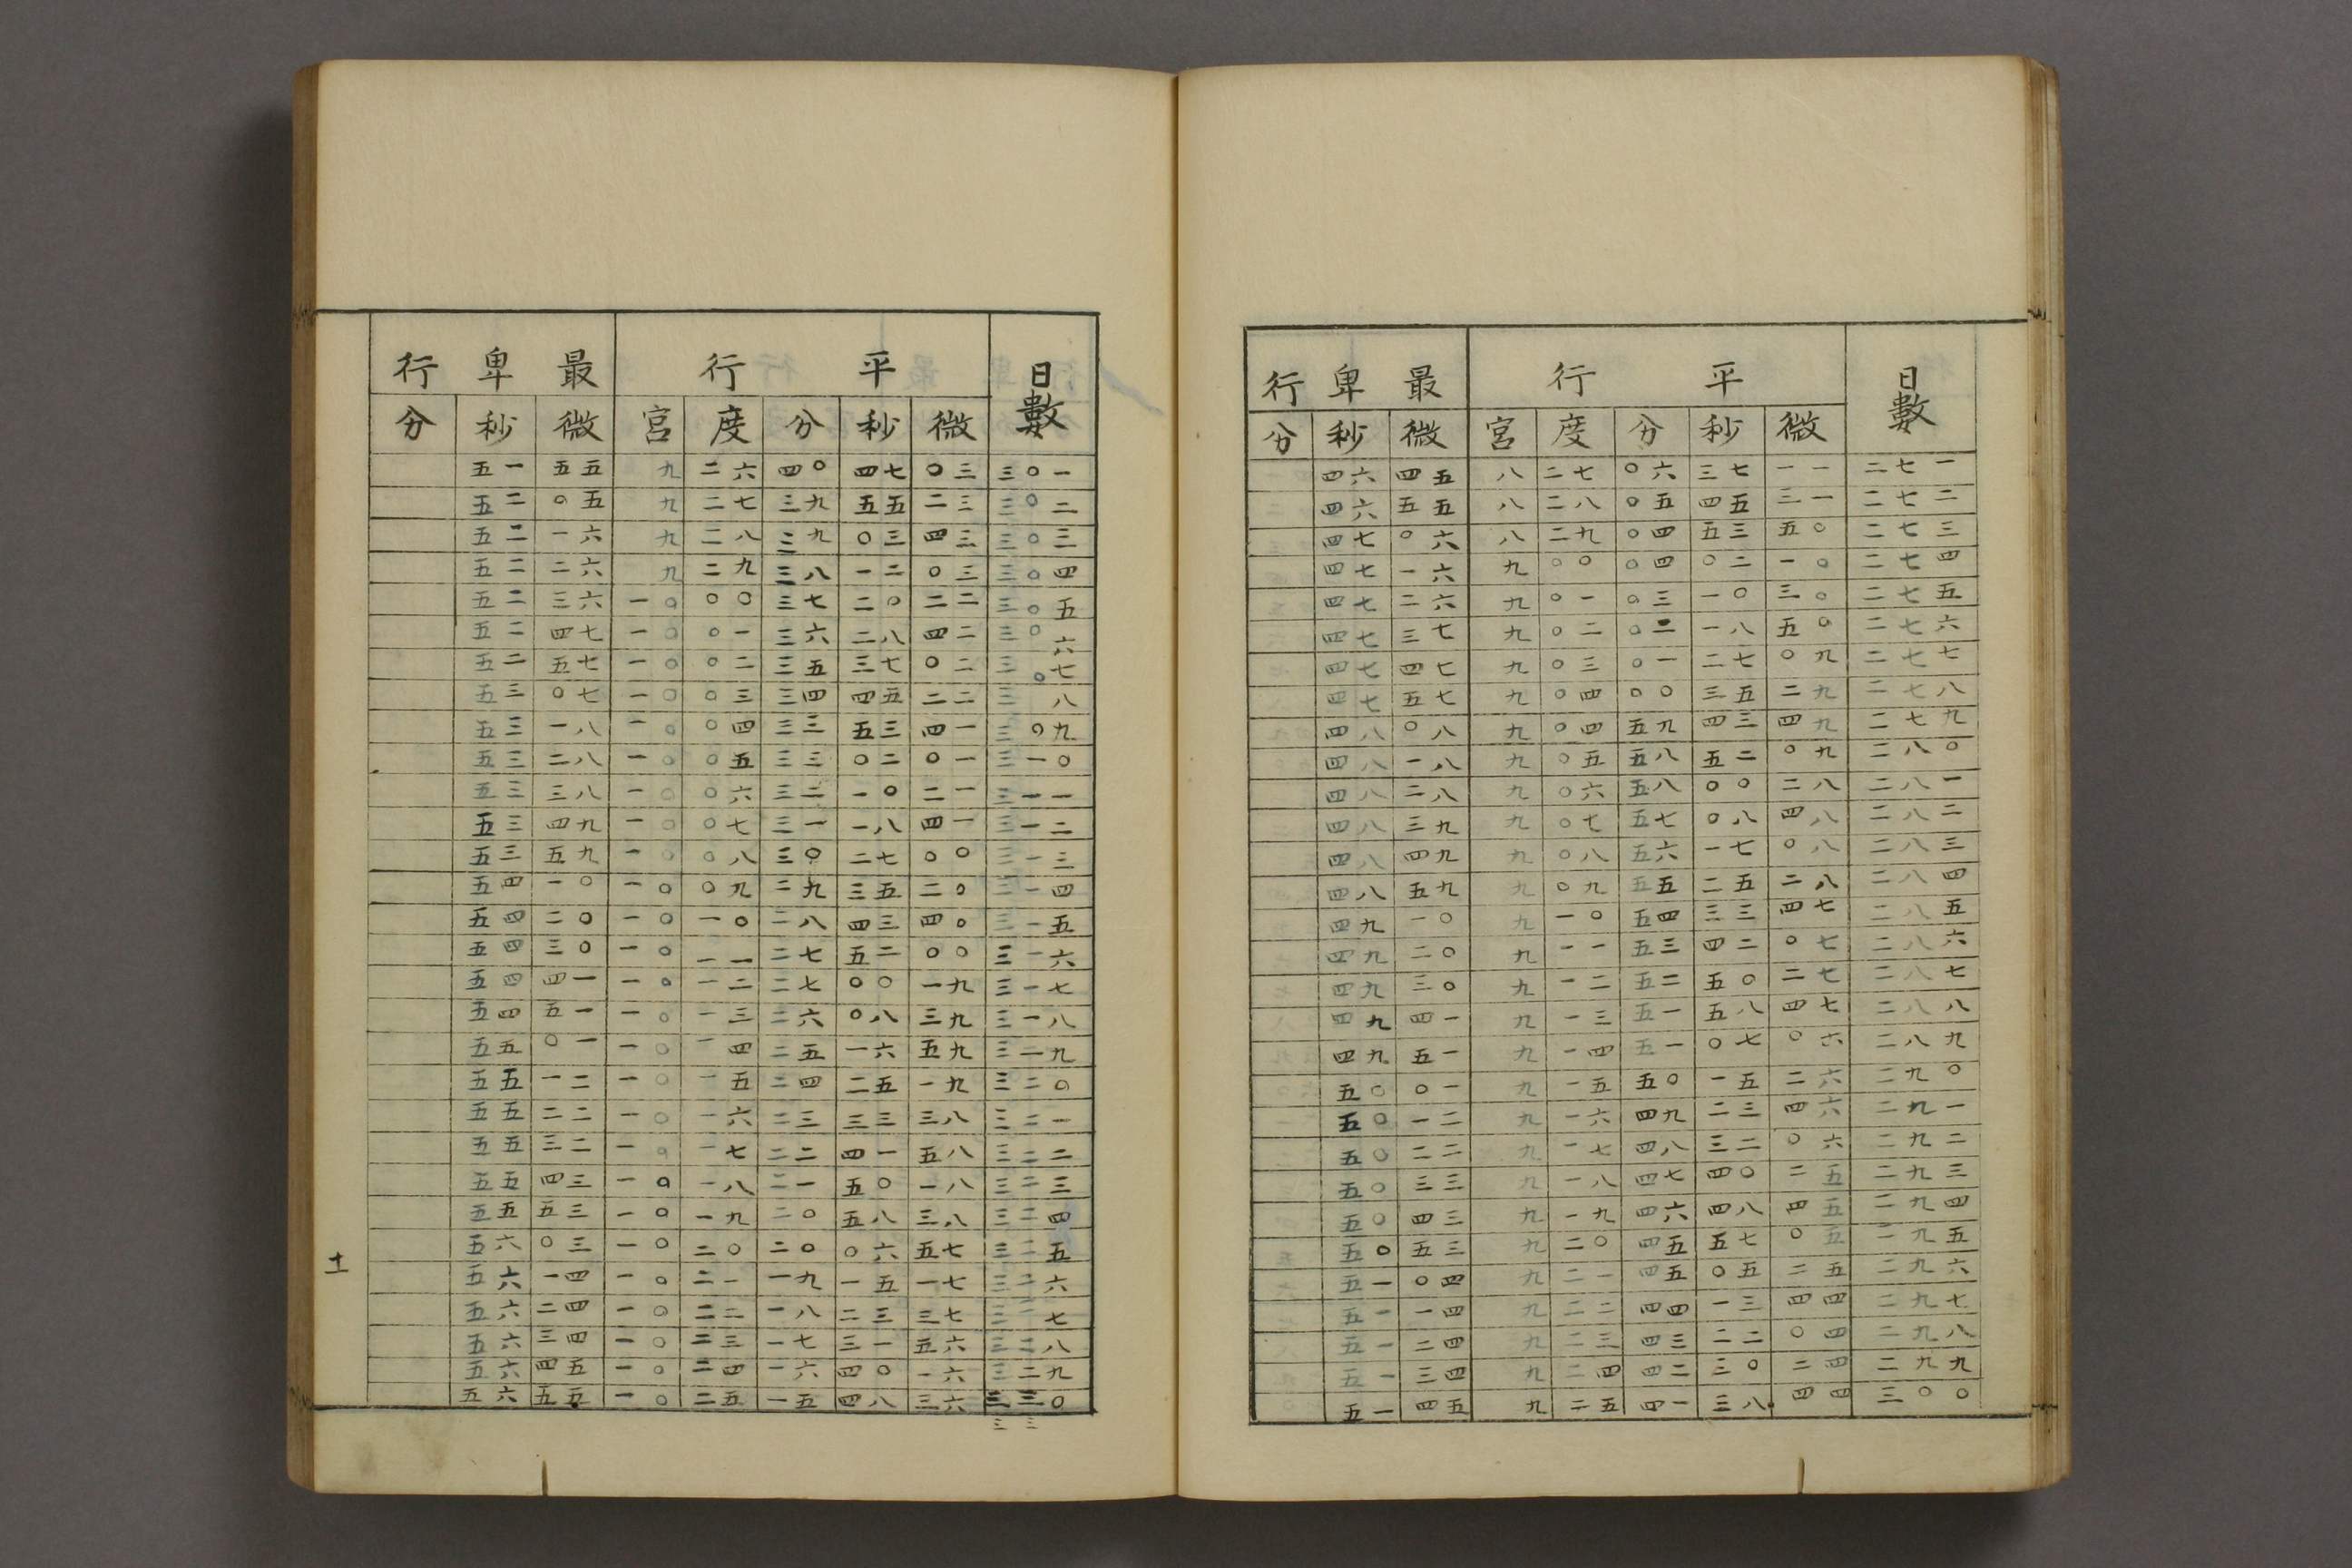 日數 平行 最卑行
微 秒 分 度 宮 微 秒 分
二七一 一一 三七 〇六 二七 八 四五 四六
二七二 三一 四五 〇五 二八 八 五五 四六
二七三 五〇 五三 〇四 二九 八 〇六 四七
二七四 一〇 〇二 〇四 〇〇 九 一六 四七
二七五 三〇 一〇 〇三 〇一 九 二六 四七
二七六 五〇 一八 〇二 〇二 九 三七 四七
二七七 〇九 二七 〇一 〇三 九 四七 四七
二七八 二九 三五 〇〇 〇四 九 五七 四七
二七九 四九 四三 五九 〇四 九 〇八 四八
二八〇 〇九 五二 五八 〇五 九 一八 四八
二八一 二八 〇〇 五八 〇六 九 二八 四八
二八二 四八 〇八 五七 〇七 九 三九 四八
二八三 〇八 一七 五六 〇八 九 四九 四八
二八四 二八 二五 五五 〇九 九 五九 四八
二八五 四七 三三 五四 一〇 九 一〇 四九
二八六 〇七 四二 五三 一一 九 二〇 四九
二八七 二七 五〇 五二 一二 九 三〇 四九
二八八 四七 五八 五一 一三 九 四一 四九
二八九 〇六 〇七 五一 一四 九 五一 四九
二九〇 二六 一五 五〇 一五 九 〇一 五〇
二九一 四六 二三 四九 一六 九 一二 五〇
二九二 〇六 三二 四八 一七 九 二二 五〇
二九三 二五 四〇 四七 一八 九 三三 五〇
二九四 四五 四八 四六 一九 九 四三 五〇
二九五 〇五 五七 四五 二〇 九 五三 五〇
二九六 二五 〇五 四五 二一 九 〇四 五一
二九七 四四 一三 四四 二二 九 一四 五一
二九八 〇四 二二 四三 二三 九 二四 五一
二九九 二四 三〇 四二 二四 九 三四 五一
三〇〇 四四 三八 四一 二五 九 四五 五一
日數 平行 最卑行
微 秒 分 度 宮 微 秒 分
三〇一 〇三 四七 四〇 二六 九 五五 五一
三〇二 二三 五五 三九 二七 九 〇五 五二
三〇三 四三 〇三 三九 二八 九 一六 五二
三〇四 〇三 一二 三八 二九 九 二六 五二
三〇五 二二 二〇 三七 〇〇 一〇 三六 五二
三〇六 四二 二八 三六 〇一 一〇 四七 五二
三〇七 〇二 三七 三五 〇二 一〇 五七 五二
三 八 二二 四五 三四 〇三 一〇 〇七 五三
三〇九 四一 五三 三三 〇四 一〇 一八 五三
三一〇 〇一 〇二 三三 〇五 一〇 二八 五三
三一一 二一 一〇 三二 〇六 一〇 三八 五三
三一二 四一 一八 三一 〇七 一〇 四九 五三
三一三 〇〇 二七 三〇 〇八 一〇 五九 五三
三一四 二〇 三五 二九 〇九 一〇 一〇 五四
三一五 四〇 四三 二八 一〇 一〇 二〇 五四
三一六 〇〇 五二 二七 一一 一〇 三〇 五四
三一七 一九 〇〇 二七 一二 一〇 四一 五四
三一八 三九 〇八 二六 一三 一〇 五一 五四
三一九 五九 一六 二五 一四 一〇 〇一 五五
三二〇 一九 二五 二四 一五 一〇 一二 五五
三二一 三八 三三 二三 一六 一〇 二二 五五
三二二 五八 四一 二二 一七 一〇 三二 五五
三二三 一八 五〇 二一 一八 一〇 四三 五五
三二四 三八 五八 二〇 一九 一〇 五三 五五
三二五 五七 〇六 二〇 二〇 一〇 〇三 五六
三二六 一七 一五 一九 二一 一〇 一四 五六
三二七 三七 二三 一八 二二 一〇 二四 五六
三二八 五六 三一 一七 二三 一〇 三四 五六
三二九 一六 四〇 一六 二四 一〇 四五 五六
三三〇 三六 四八 一五 二五 一〇 五五 五六
三三
十一